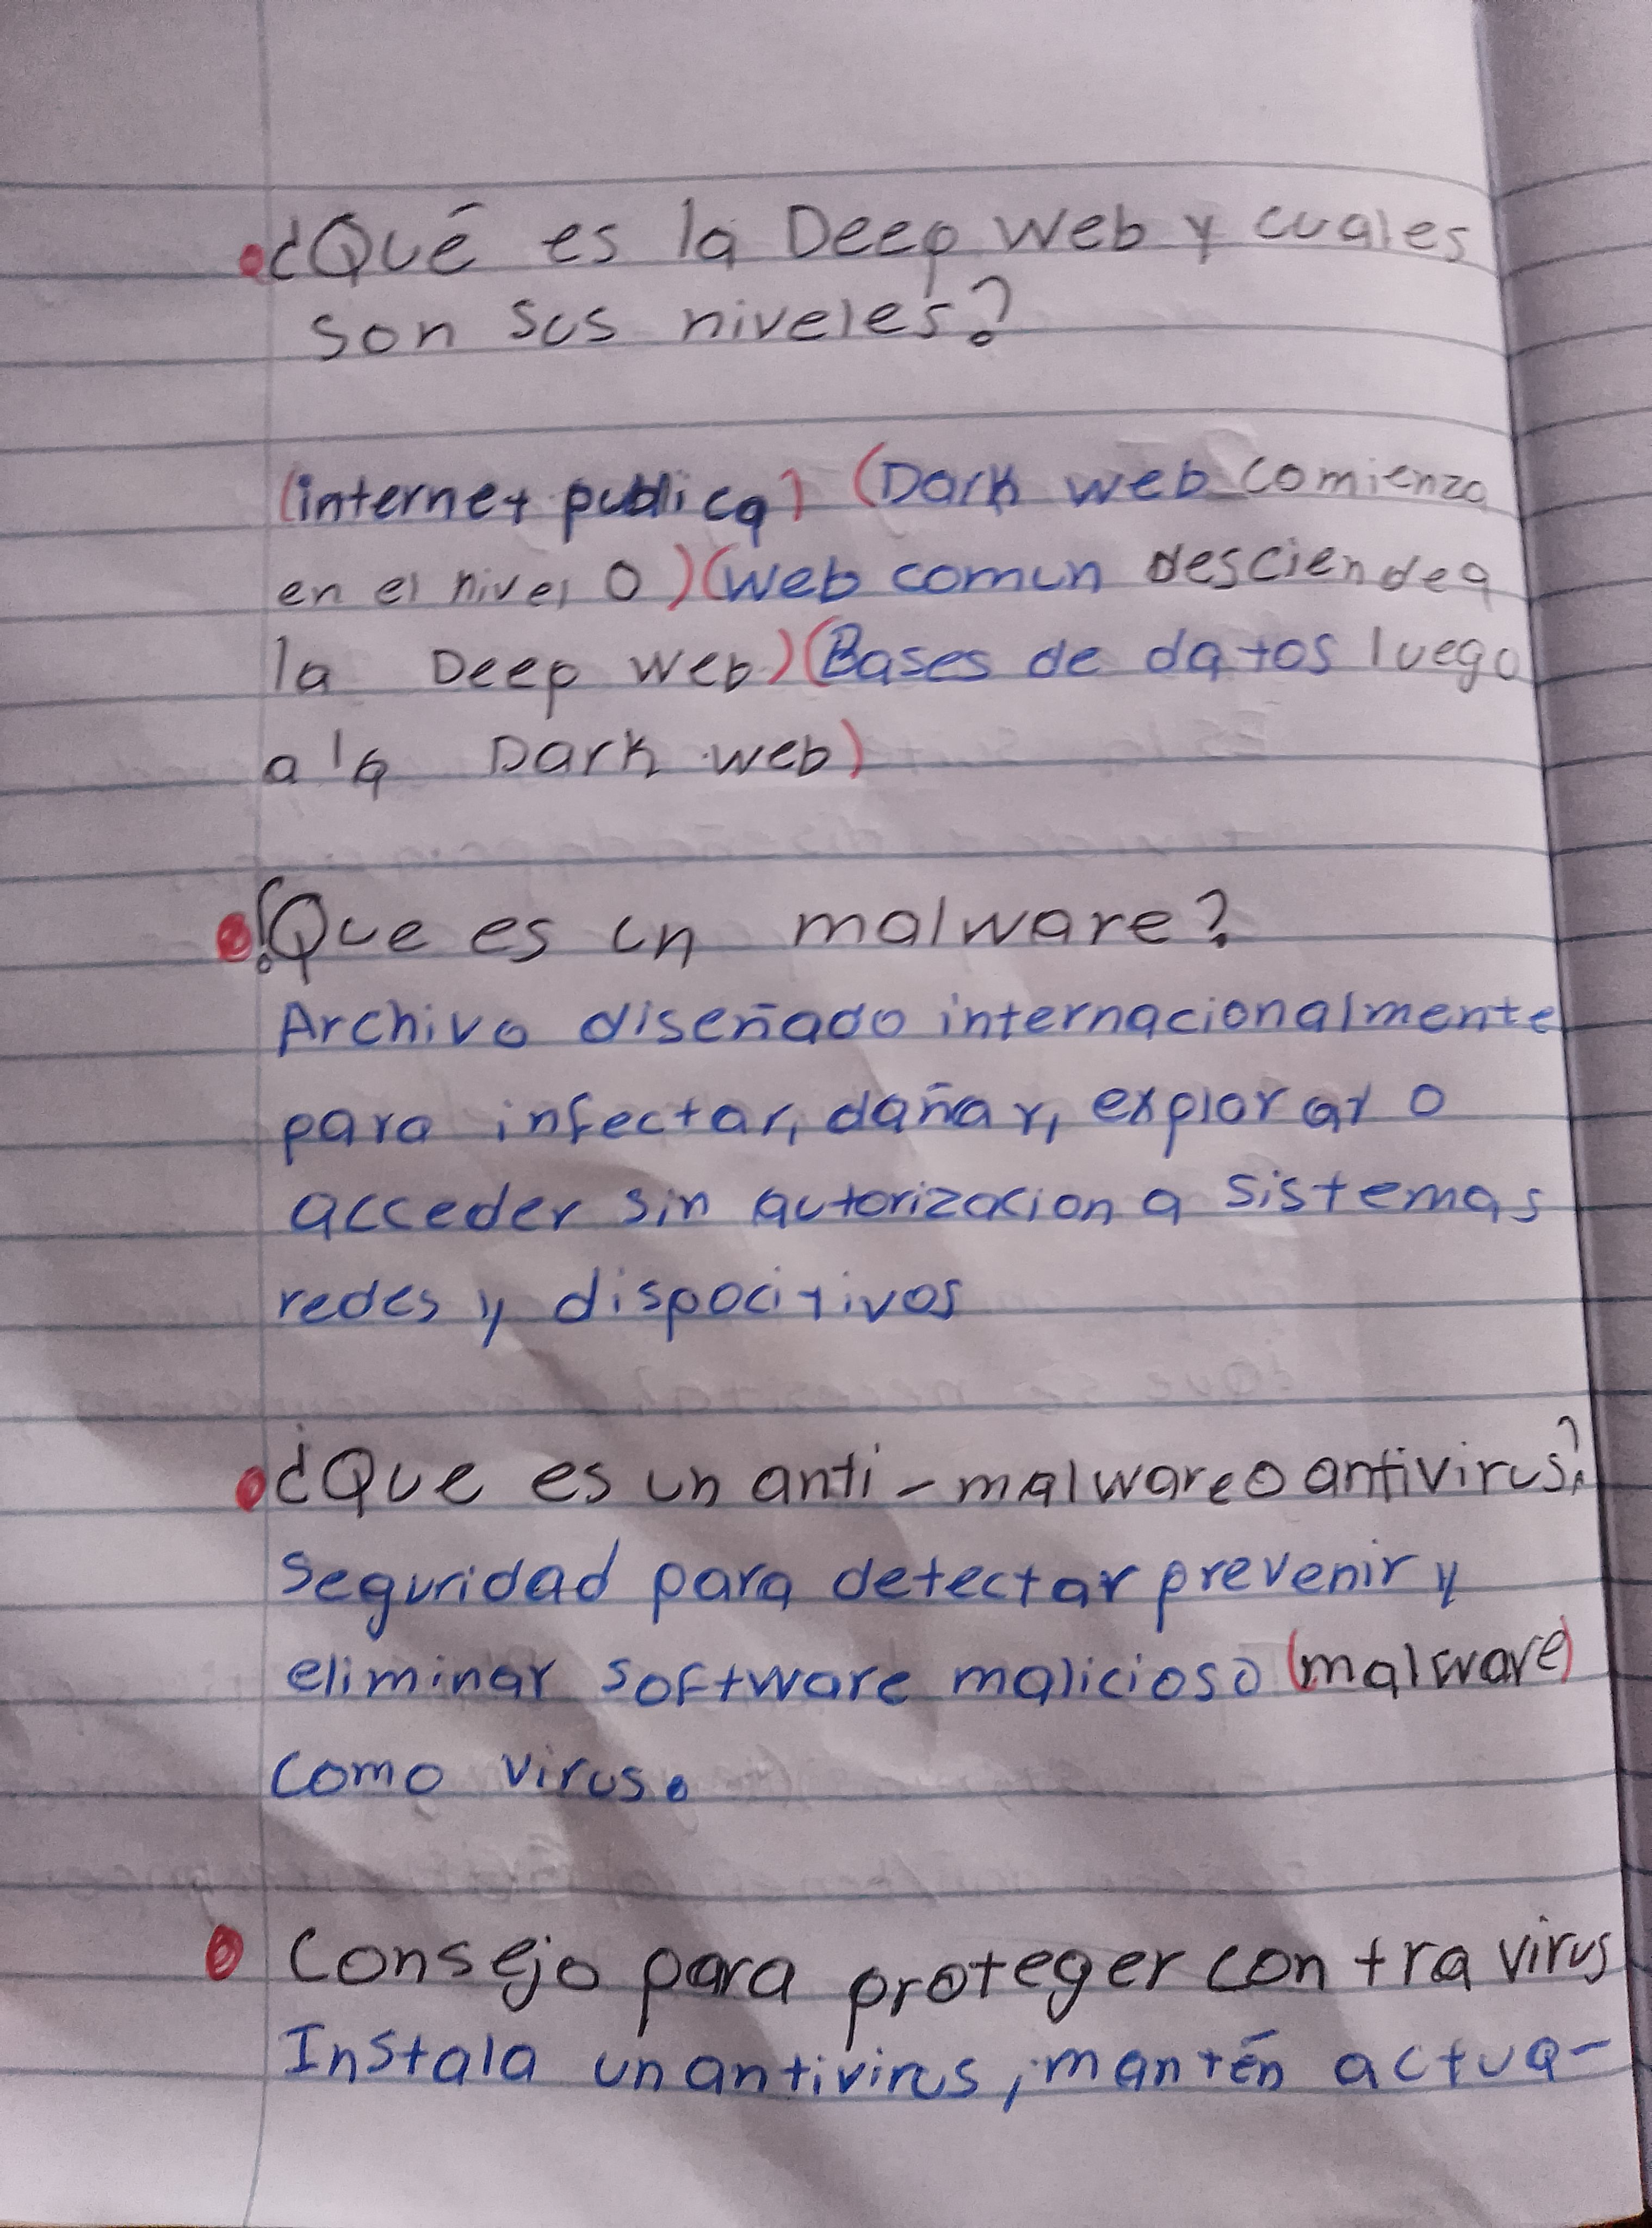 ¿Qué es la Deep web y cuales
son sus niveles?
(internet publica) (Dark web comienza
en el nivel 0) (web comun desciende a
la Deep web) (Bases de datos luego
a la Dark web)
¿Que es un malware?
Archivo diseñado internacionalmente
para infectar, dañar, explorar o
acceder sin autorizacion a sistemas
redes y dispocitivos
¿Que es un anti-malware o antivirus?
Seguridad para detectar prevenir y
eliminar software malicioso (malware)
como virus.
Consejo para proteger contra virus
Instala un antivirus, mantén actua-